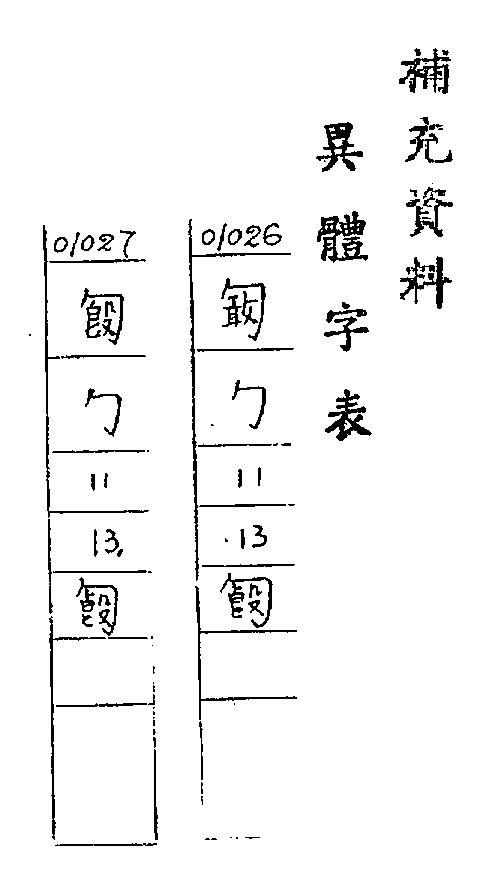 補充資料
異體字表
01026
勹
11
13
01027
勹
11
13